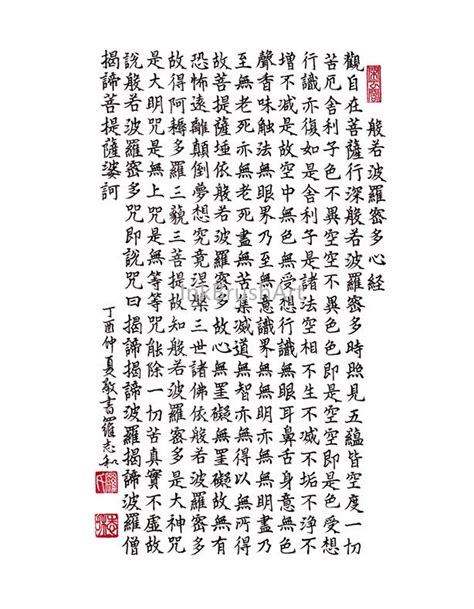 般若波羅密多心經
觀自在菩薩行深般若波羅密多時照見五蘊皆空度一切
苦厄舍利子色不異空空不異色色即是空空即是色受想
行識亦復如是舍利子是諸法空相不生不滅不垢不淨不
增不減是故空中無色無受想行識無眼耳鼻舌身意無色
聲香味触法無眼界乃至無意識界無無明亦無無明盡乃
至無老死亦無老死盡無苦集滅道無智亦無得以無所得
故菩提薩埵依般若波羅密多故心無罣礙無罣礙故無有
恐怖遠離顛倒夢想究竟涅槃三世諸佛依般若波羅密多
故得阿耨多羅三藐三菩提故知般若波羅密多是大神咒
是大明咒是無上咒是無等等咒能除一切苦真實不虛故
說般若波羅密多咒即說咒曰揭諦揭諦波羅揭諦波羅僧
揭諦菩提薩婆訶
丁酉仲夏敬書羅志和
InkBrushArt